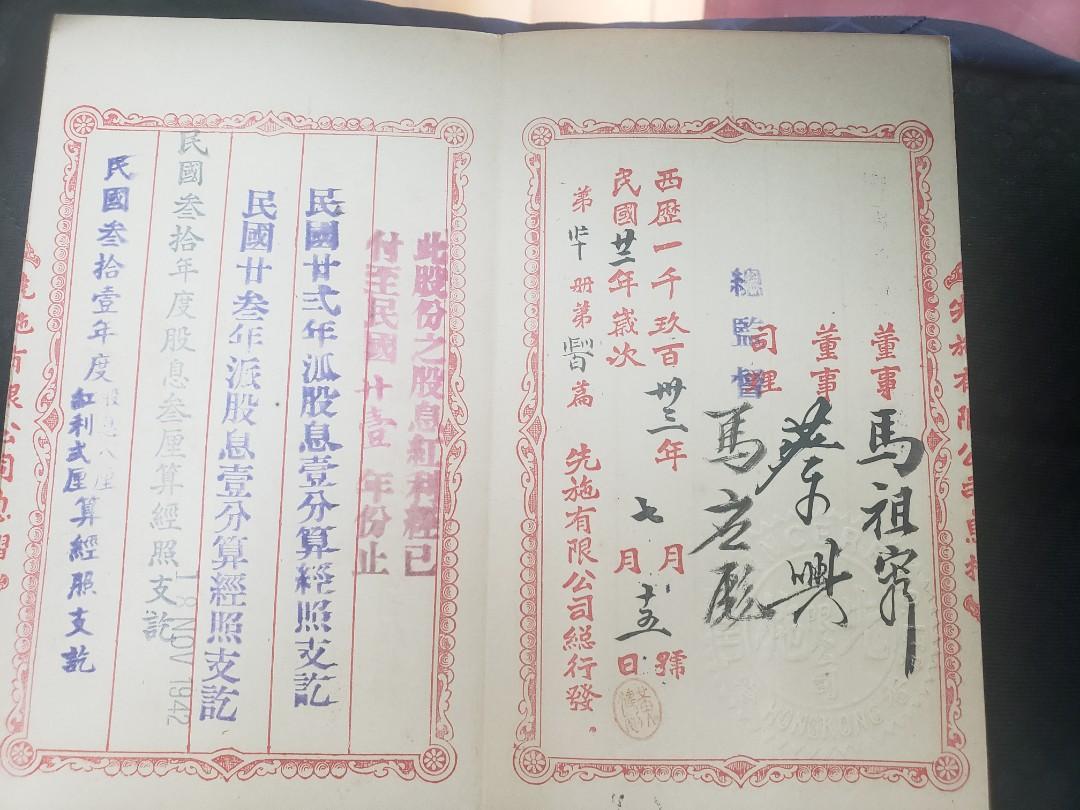 董事 馬祖容
董事 蔡興
司理
總監督 馬應彪
西歷一千玖百卅三年 月 號
民國廿二年歲次 七月十五日
第 册第 篇 先施有限公司總行發
HONGKONG
此股份之股息紅利經已
付至民國廿壹年份止
民國廿弍年派股息壹分算經照支訖
民國廿叁年派股息壹分算經照支訖
民國叁拾年度股息叁厘算經照支訖
18 NOV 1942
民國叁拾壹年度股息八厘紅利弍厘算經照支訖